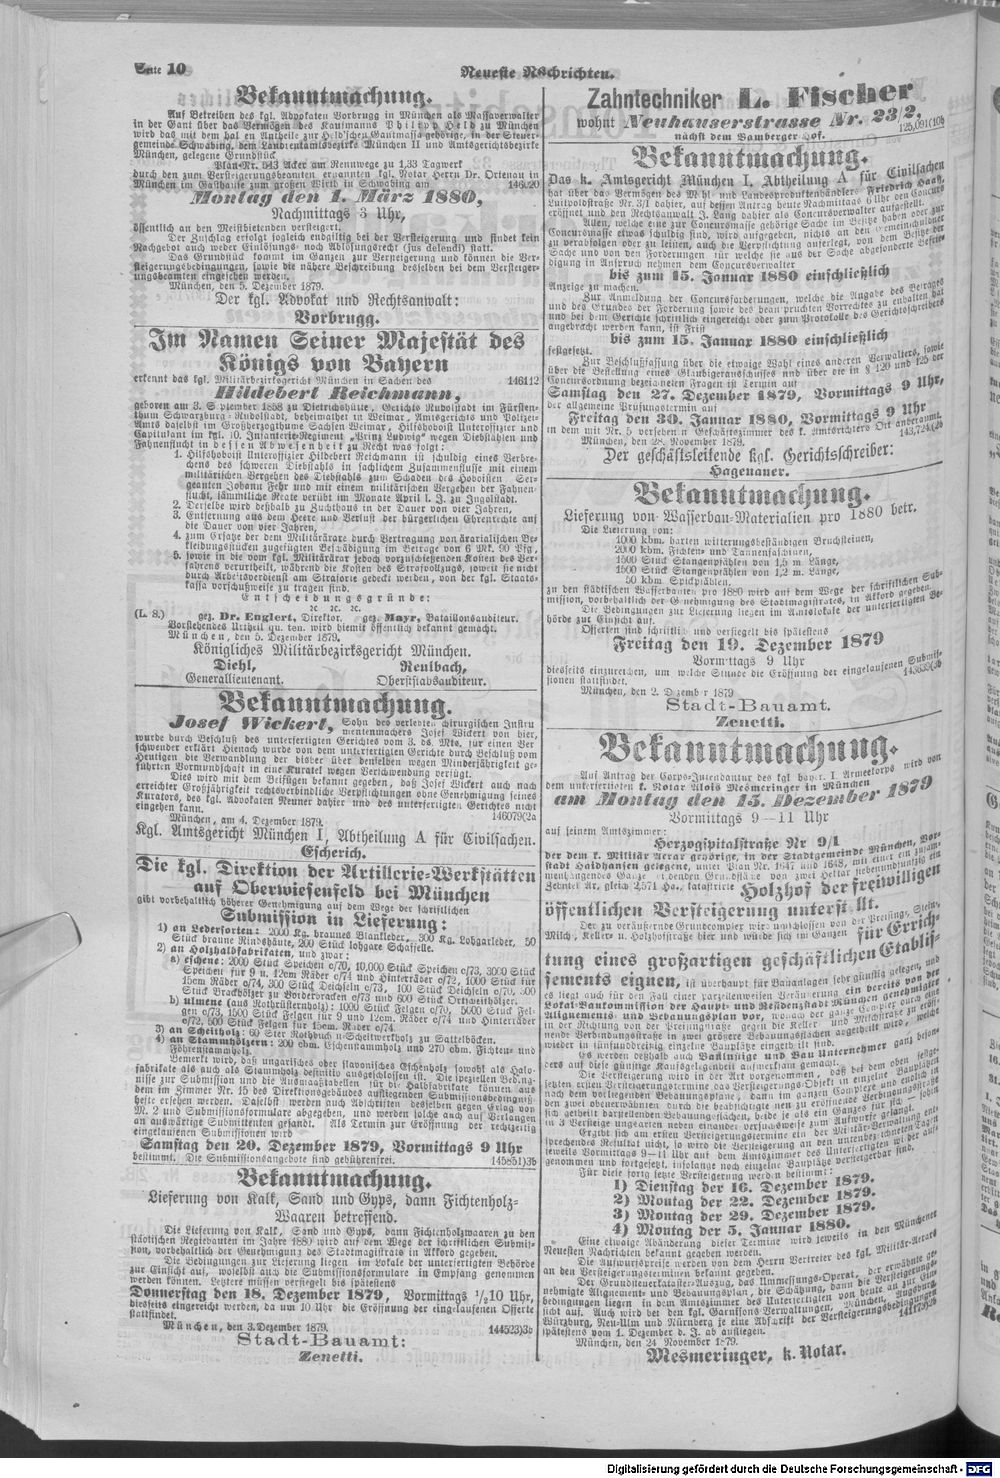 Seite 10
Neueste Nachrichten.
Bekanntmachung.
Auf Betreiben des kgl. Advokaten Vorbrugg in München als Massaverwalter
in der Gant über das Vermögen des Kaufmanns Philipp Held zu München
wird das mit dem hal en Antheile zur Held'schen Gantmassa gehörige, in der Steuer-
gemeinde Schwabing, dem Landrentamtsbezirke München II und Amtsgerichtsbezirke
München, gelegene Grundstück
Plan-Nr. 543 Acker am Rennwege zu 1,33 Tagwerk
durch den zum Versteigerungsbeamten ernannten kgl. Notar Herrn Dr. Ortenau in
München im Gasthause zum großen Wirth in Schwabing am
Montag den 1. März 1880,
Nachmittags 3 Uhr,
öffentlich an den Meistbietenden versteigert.
Der Zuschlag erfolgt sogleich endgiltig bei der Versteigerung, und findet kein
Nachgebot auch weder Einlösungs- noch Ablösungsrecht (jus delendi) statt.
Das Grundstück kommt im Ganzen zur Versteigerung und können die Ver-
steigerungsbedingungen, sowie die nähere Beschreibung desselben bei dem Versteiger-
ungsbeamten eingesehen werden.
München, den 5. Dezember 1879.
Der kgl. Advokat und Rechtsanwalt:
Vorbrugg.
Im Namen Seiner Majestät des
Königs von Bayern
erkennt das kgl. Militärbezirksgericht München in Sachen des 146112
Hildebert Reichmann,
geboren am 3. September 1858 zu Dietrichshütte, Gerichts Rudolstadt im Fürsten-
thum Schwarzburg-Rudolstadt, beheimathet in Weimar, Amtsgerichts und Polizei-
Amts daselbst im Großherzogthume Sachsen Weimar, Hilfshoboist Unteroffizier und
Capitulant im kgl. 10. Infanterie-Regiment „Prinz Ludwig" wegen Diebstahlen und
Fahnenflucht in dessen Abwesenheit zu Recht was folgt:
1. Hilfshoboist Unteroffizier Hildebert Reichmann ist schuldig eines Verbre-
chens des schweren Diebstahls in sachlichem Zusammenflusse mit einem
militärischen Vergehen des Diebstahls zum Schaden des Hoboisten Ser-
geanten Johann Fehr und mit einem militärischen Vergehen der Fahnen-
flucht, sämmtliche Reate verübt im Monate April l. J. zu Ingolstadt.
2. Derselbe wird deßhalb zu Zuchthaus in der Dauer von vier Jahren,
3. Entfernung aus dem Heere und Verlust der bürgerlichen Ehrenrechte auf
die Dauer von vier Jahren,
4. zum Ersatze der dem Militärärare durch Vertragung von ärarialischen Be-
kleidungsstücken zugefügten Beschädigung im Betrage von 6 Mk. 90 Pfg.,
5. sowie in die vom kgl. Militärärar jedoch vorzuschießenden Kosten des Ver-
fahrens verurtheilt, während die Kosten des Strafvollzugs, soweit sie nicht
durch Arbeitsverdienst am Straforte gedeckt werden, von der kgl. Staats-
kassa vorschußweise zu tragen sind.
Entscheidungsgründe:
ꝛc. ꝛc. ꝛc.
(L. S.) gez. Dr. Englert, Direktor. gez. Mayr, Bataillonsauditeur.
Vorstehendes Urtheil wird hiemit öffentlich bekannt gemacht.
München, den 5. Dezember 1879.
Königliches Militärbezirksgericht München.
Diehl, Reulbach,
Generallieutenant. Oberstabsauditeur.
Bekanntmachung.
Josef Wickert, Sohn des verlebten chirurgischen Instru
mentenmachers Josef Wickert von hier,
wurde durch Beschluß des unterfertigten Gerichts vom 3. ds. Mts. für einen Ver-
schwender erklärt Hienach wurde von dem unterfertigten Gerichte durch Beschluß vom
Heutigen die Verwandlung der bisher über denselben wegen Minderjährigkeit ge-
führten Vormundschaft in eine Kuratel wegen Verschwendung verfügt.
Dies wird mit dem Beifügen bekannt gegeben, daß Josef Wickert auch nach
erreichter Großjährigkeit rechtsverbindliche Verpflichtungen ohne Genehmigung seines
Kurators, des kgl. Advokaten Neuner dahier und des unterfertigten Gerichtes nicht
eingehen kann. 146079(2a
München, am 4. Dezember 1879.
Kgl. Amtsgericht München I, Abtheilung A für Civilsachen.
Escherich.
Die kgl. Direktion der Artillerie-Werkstätten
auf Oberwiesenfeld bei München
gibt vorbehaltlich höherer Genehmigung auf dem Wege der schriftlichen
Submission in Lieferung:
1) an Ledersorten: 2000 Kg. braunes Blankleder, 300 Kg. Lohgarleder, 50
Stück braune Rindshäute, 200 Stück lohgare Schaffelle.
2) an Holzhalbfabrikaten, und zwar:
a) eschene: 2000 Stück Speichen c/70, 10,000 Stück Speichen c/73, 3000 Stück
Speichen für 9 u. 12cm Räder c/74 und Hinterräder c/72, 1000 Stück für
15cm Räder c/74, 300 Stück Deichseln c/73, 100 Stück Deichseln c/70, 300
Stück Brackhölzer zu Vorderbracken c/73 und 600 Stück Ortscheithölzer.
b) ulmene (aus Rothrüsternholz): 1000 Stück Felgen c/70, 5000 Stück Fel-
gen c/73, 1500 Stück Felgen für 9 und 12cm. Räder c/74 und Hinterräder
c/72, 500 Stück Felgen für 15cm. Räder c/74.
3) an Scheitholz: 60 Ster Rothbuchen-Scheitwerkholz zu Sattelböcken.
4) an Stammhölzern: 200 cbm. Eschenstammholz und 270 cbm. Fichten- und
Föhrenstammholz.
Bemerkt wird, daß ungarisches oder slavonisches Eschenholz sowohl als Halb-
fabrikate als auch als Stammholz definitiv ausgeschlossen ist. Die speziellen Beding-
nisse zur Submission und die Ausmaaßtabellen für die Halbfabrikate können aus
dem im Zimmer Nr. 15 des Direktionsgebäudes aufliegenden Submissionsbedingniß-
hefte ersehen werden. Daselbst werden auch Abschriften desselben gegen Erlag von
M. 2 und Submissionsformulare abgegeben, und werden solche auch auf Verlangen
an auswärtige Submittenten gesandt. Als Termin zur Eröffnung der rechtzeitig
eingelaufenen Submissionen wird
Samstag den 20. Dezember 1879, Vormittags 9 Uhr
bestimmt. Die Submissionsangebote sind gebührenfrei. 145851)3b
Bekanntmachung.
Lieferung von Kalk, Sand und Gyps, dann Fichtenholz-
Waaren betreffend.
Die Lieferung von Kalk, Sand und Gyps, dann Fichtenholzwaaren zu den
städtischen Regiebauten im Jahre 1880 wird auf dem Wege der schriftlichen Submis-
sion, vorbehaltlich der Genehmigung des Stadtmagistrats in Akkord gegeben.
Die Bedingungen zur Lieferung liegen im Lokale der unterfertigten Behörde
zur Einsicht auf, woselbst auch die Submissionsformulare in Empfang genommen
werden können. Letztere müssen versiegelt bis spätestens
Donnerstag den 18. Dezember 1879, Vormittags ½10 Uhr,
diesseits eingereicht werden, da um 10 Uhr die Eröffnung der eingelaufenen Offerte
stattfindet.
München, den 3. Dezember 1879. 144523)3b
Stadt-Bauamt:
Zenetti.
Zahntechniker L. Fischer
wohnt Neuhauserstrasse Nr. 23/2,
nächst dem Bamberger Hof. 125,091(10b
Bekanntmachung.
Das k. Amtsgericht München I. Abtheilung A für Civilsachen
hat über das Vermögen des Mehl- und Landesproduktenhändlers Friedrich Haaß,
Luitpoldstraße Nr. 3/1 dahier, auf dessen Antrag heute Nachmittags 6 Uhr den Concurs
eröffnet und den Rechtsanwalt J. Lang dahier als Concursverwalter aufgestellt.
Allen, welche eine zur Concursmasse gehörige Sache im Besitze haben oder zur
Concursmasse etwas schuldig sind, wird aufgegeben, nichts an den Gemeinschuldner
zu verabfolgen oder zu leisten, auch die Verpflichtung auferlegt, von dem Besitze der
Sache und von den Forderungen für welche sie aus der Sache abgesonderte Befrie-
digung in Anspruch nehmen dem Concursverwalter
bis zum 15. Januar 1880 einschließlich
Anzeige zu machen.
Zur Anmeldung der Concursforderungen, welche die Angabe des Betrages
und des Grundes der Forderung sowie des beanspruchten Vorrechtes zu enthalten hat
und bei dem Gerichte schriftlich eingereicht oder zum Protokolle des Gerichtsschreibers
angebracht werden kann, ist Frist
bis zum 15. Januar 1880 einschließlich
festgesetzt.
Zur Beschlußfassung über die etwaige Wahl eines anderen Verwalters, sowie
über die Bestellung eines Gläubigerausschusses und über die in § 120 und 125 der
Concursordnung bezeichneten Fragen ist Termin auf
Samstag den 27. Dezember 1879, Vormittags 9 Uhr,
der allgemeine Prüfungstermin auf
Freitag den 30. Januar 1880, Vormittags 9 Uhr
in dem mit Nr. 5 versehenen Geschäftszimmer des k. Amtsrichters Ott anberaumt.
München, den 28. November 1879. 143,724(2b
Der geschäftsleitende kgl. Gerichtschreiber:
Hagenauer.
Bekanntmachung.
Lieferung von Wasserbau-Materialien pro 1880 betr.
Die Lieferung von:
1000 kbm. harten witterungsbeständigen Bruchsteinen,
2000 kbm. Fichten- und Tannenfaschinen,
1500 Stück Stangenpfählen von 1,5 m Länge,
1500 Stück Stangenpfählen von 1,2 m. Länge,
50 kbm. Spickpfählen
zu den städtischen Wasserbauten pro 1880 wird auf dem Wege der schriftlichen Sub-
mission, vorbehaltlich der Genehmigung des Stadtmagistrates, in Akkord gegeben.
Die Bedingungen zur Lieferung liegen im Amtslokale der unterfertigten Be-
hörde zur Einsicht auf.
Offerten sind schriftlich und versiegelt bis spätestens
Freitag den 19. Dezember 1879
Vormittags 9 Uhr
diesseits einzureichen, um welche Stunde die Eröffnung der eingelaufenen Submis-
sionen stattfindet. 143639(3b
München, den 2. Dezember 1879
Stadt-Bauamt.
Zenetti.
Bekanntmachung.
Auf Antrag der Corps-Intendantur des kgl bayer. I Armeekorps wird von
dem unterfertigten k. Notar Alois Mesmeringer in München
am Montag den 15. Dezember 1879
Vormittags 9—11 Uhr
auf seinem Amtszimmer:
Herzogspitalstraße Nr 9/1
der dem k. Militär Aerar gehörige, in der Stadtgemeinde München, Vor-
stadt Haidhausen gelegene, unter Plan Nr. 1647 und 1648, mit einer zusam-
menhängenden Ganze bildenden Grundfläche von zwei Hektar siebenundfünfzig ein
Zehntel Ar, gleich 2,571 Ha., katastrirte Holzhof der freiwilligen
öffentlichen Versteigerung unterstellt.
Der zu veräußernde Grundcomplex wird umschlossen von der Preising-, Stein-,
Milch-, Keller- u. Holzhofstraße hier und würde sich im Ganzen für Errich-
tung eines großartigen geschäftlichen Etablis-
sements eignen, ist überhaupt für Bauanlagen sehr günstig gelegen, und
es liegt auch für den Fall einer parzellenweisen Veräußerung ein bereits von der
Lokal-Baukommission der Haupt- und Residenzstadt München genehmigter
Alignements- und Bebauungsplan vor, wonach der ganze Complex durch eine
in der Richtung von der Preysingstraße gegen die Keller- und Milchstraße zu öffnende
neue Verbindungsstraße in zwei größere Bebauungsflächen abgetheilt wird, welche
wieder in fünfundvierzig einzelne Bauplätze eingetheilt sind.
Es werden deßhalb auch Baulustige und Bau Unternehmer ganz beson-
ders auf diese günstige Kaufsgelegenheit aufmerksam gemacht.
Die Versteigerung wird in der Art vorgenommen, daß bei dem oben festge-
setzten ersten Versteigerungstermine das Versteigerungs-Objekt im einzelnen Bauplätzen
nach dem vorliegenden Bebauungsplane, dann im ganzen Complexe und endlich in
den zwei obenerwähnten, durch die beabsichtigte neu zu eröffnende Verbindungsstraße
sich getheilt darzustellenden Bebauungsflächen, beide je als ein Ganzes für sich — sohin
in 3 Versteigerungsarten neben einander versuchsweise zum Aufwurfe gelangt.
Ergibt sich am ersten Versteigerungstermine ein der Militär-Verwaltung ent-
sprechendes Resultat nicht, so wird die Versteigerung an den untenbezeichneten Tagen
jeweils Vormittags 9—11 Uhr auf dem Amtszimmer des Unterfertigten wieder auf-
genommen und fortgesetzt, insolange noch einzelne Bauplätze versteigerbar sind.
Für diese fortgesetzte Versteigerung werden bestimmt:
1) Dienstag der 16. Dezember 1879.
2) Montag der 22. Dezember 1879.
3) Montag der 29. Dezember 1879.
4) Montag der 5. Januar 1880.
Eine etwaige Abänderung dieser Termine wird jeweils in den Münchener
Neuesten Nachrichten bekannt gegeben werden.
Die Aufwurfspreise werden von dem Herrn Vertreter des kgl. Militär-Aerars
an den Versteigerungsterminen bekannt gegeben.
Der Grundsteuerkataster-Auszug, das Ummessungs-Operat, der erwähnte ge-
nehmigte Alignement- und Bebauungsplan, die Schätzung, dann die Versteigerungs-
bedingungen liegen in dem Amtszimmer des Unterfertigten von heute an zur Ein-
sicht auf. Auch wird bei den kgl. Garnisons-Verwaltungen, München, Augsburg,
Würzburg, Neu-Ulm und Nürnberg je eine Abschrift der Versteigerungsbedingungen
spätestens vom 1. Dezember d. J. ab aufliegen.
München, den 24 November 1879.
Mesmeringer, k. Notar.
Digitalisierung gefördert durch die Deutsche Forschungsgemeinschaft - DFG